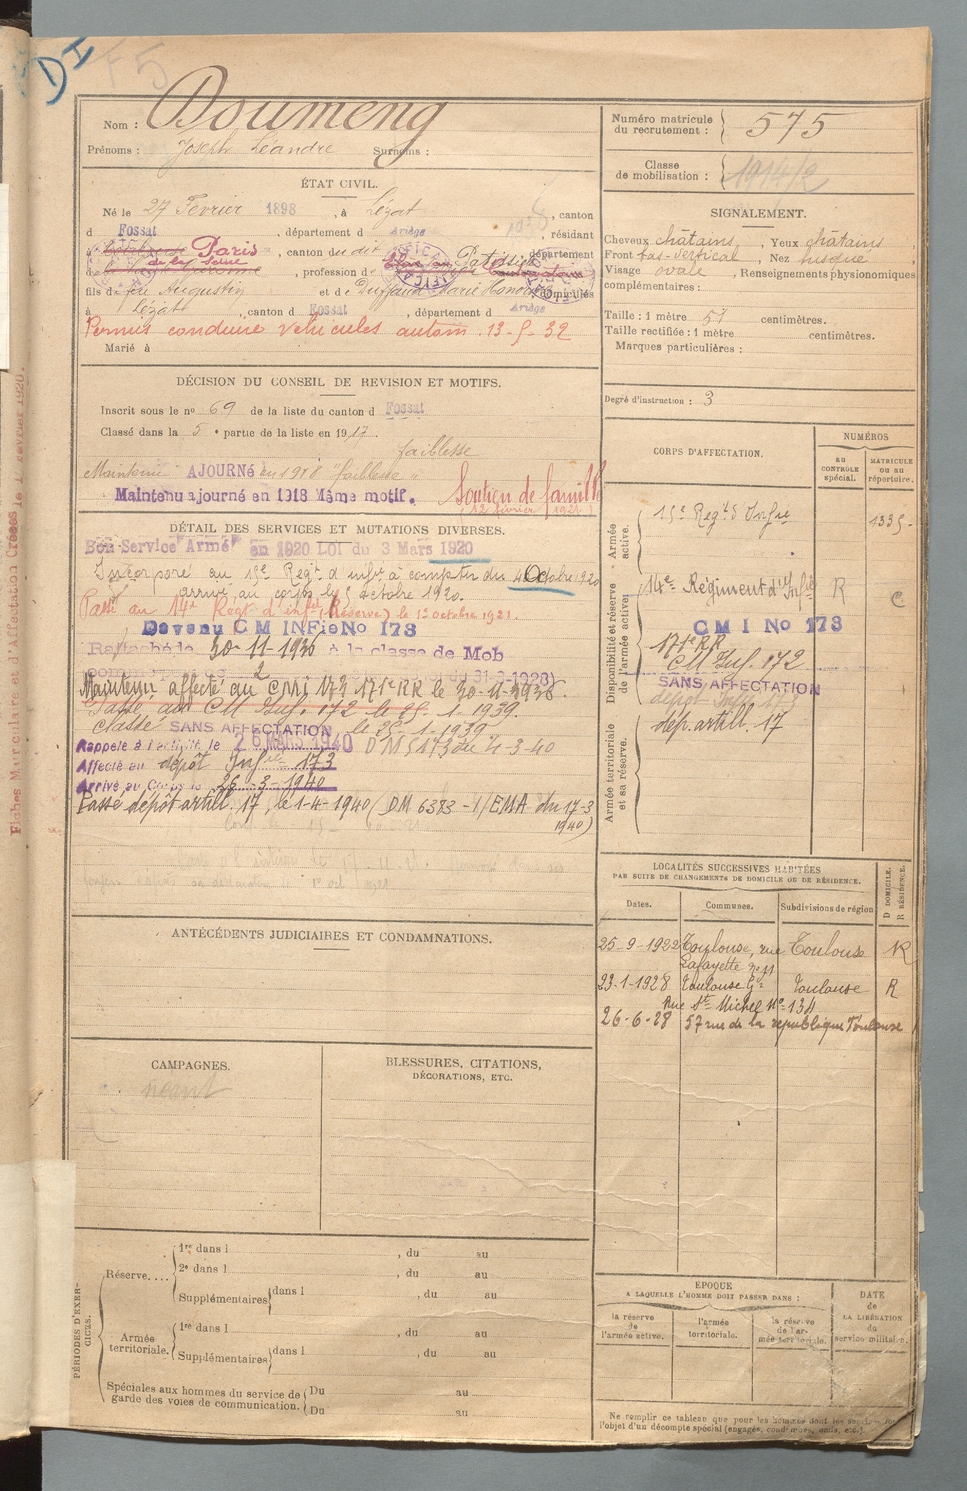 DI
F5
Nom : Doumeng
Prénoms : Joseph Léandre Surnoms :
Numéro matricule du recrutement : 575
Classe de mobilisation : 1914/2
ÉTAT CIVIL.
Né le 27 Février 1898, à Lézat, canton
d Fossat, département d Ariège, résidant
à Paris, canton du dit, département
de la Seine, profession de Patissier
fils de feu Augustin et de Marie domiciliés
à Lézat, canton d Fossat, département d Ariège
Permis conduire véhicules autom. 13-5-32
Marié à
SIGNALEMENT.
Cheveux châtains, Yeux châtains
Front bas-vertical, Nez busqué
Visage ovale, Renseignements physionomiques
complémentaires :
Taille : 1 mètre 57 centimètres.
Taille rectifiée : 1 mètre centimètres.
Marques particulières :
Degré d'instruction : 3
DÉCISION DU CONSEIL DE REVISION ET MOTIFS.
Inscrit sous le no 69 de la liste du canton d Fossat
Classé dans la 5e partie de la liste en 1917.
faiblesse
Maintenu AJOURNÉ en 1918 faiblesse
Maintenu ajourné en 1918 Même motif.
Soutien de famille
(12 février 1921)
DÉTAIL DES SERVICES ET MUTATIONS DIVERSES.
Bon Service Armé en 1920 LOI du 3 Mars 1920
Incorporé au 15e Regt d'infie à compter du 4 Octobre 1920
arrivé au corps le 5 octobre 1920.
Passé au 14e Régt d'infie (Réserve) le 1er octobre 1921.
Devenu C M INFie No 173
Rattaché le 30-11-1936 à la classe de Mob
Maintenu affecté au CMI 173 171e RR le 30-11-1936.
Passé au CM Inf. 172 le 25-1-1939.
Classé SANS AFFECTATION le 25-1-1939
Rappelé à l'activité le 26 MARS 1940 DM 5173 du 4-3-40
Affecté au dépôt Infie 173
Arrivé au Corps le 26-3-1940
Passé dépôt artill. 17, le 1-4-1940 (DM 6383-1/EMA du 17-3
1940)
CORPS D'AFFECTATION.
NUMÉROS
AU CONTRÔLE spécial.
MATRICULE OU AU répertoire.
Armée active.
15e Regt d'Infie 1335
Disponibilité et réserve de l'armée active.
14e Régiment d'Infie R
C M I No 173
171e RR
CM Inf. 172
SANS AFFECTATION
dépôt Infie 173
dép. artill. 17
Armée territoriale et sa réserve.
LOCALITÉS SUCCESSIVES HABITÉES
PAR SUITE DE CHANGEMENTS DE DOMICILE OU DE RÉSIDENCE.
Dates. Communes. Subdivisions de région D DOMICILE. R RÉSIDENCE.
25-9-1922 Toulouse, rue Lafayette no 11 Toulouse R
23-1-1928 Toulouse Gde Rue St Michel No 134 Toulouse R
26-6-28 57 rue de la république Toulouse
ANTÉCÉDENTS JUDICIAIRES ET CONDAMNATIONS.
CAMPAGNES.
néant
BLESSURES, CITATIONS,
DÉCORATIONS, ETC.
PÉRIODES D'EXERCICES.
Réserve....
1re dans l , du au
2e dans l , du au
Supplémentaires dans l , du au
Armée territoriale.
1re dans l , du au
Supplémentaires dans l , du au
Spéciales aux hommes du service de garde des voies de communication.
Du au
Du au
EPOQUE
A LAQUELLE L'HOMME DOIT PASSER DANS :
la réserve de l'armée active.
l'armée territoriale.
la réserve de l'armée territoriale.
DATE de LA LIBÉRATION du service militaire.
Ne remplir ce tableau que pour les hommes dont les services font
l'objet d'un décompte spécial (engagés, condamnés, omis, etc.)